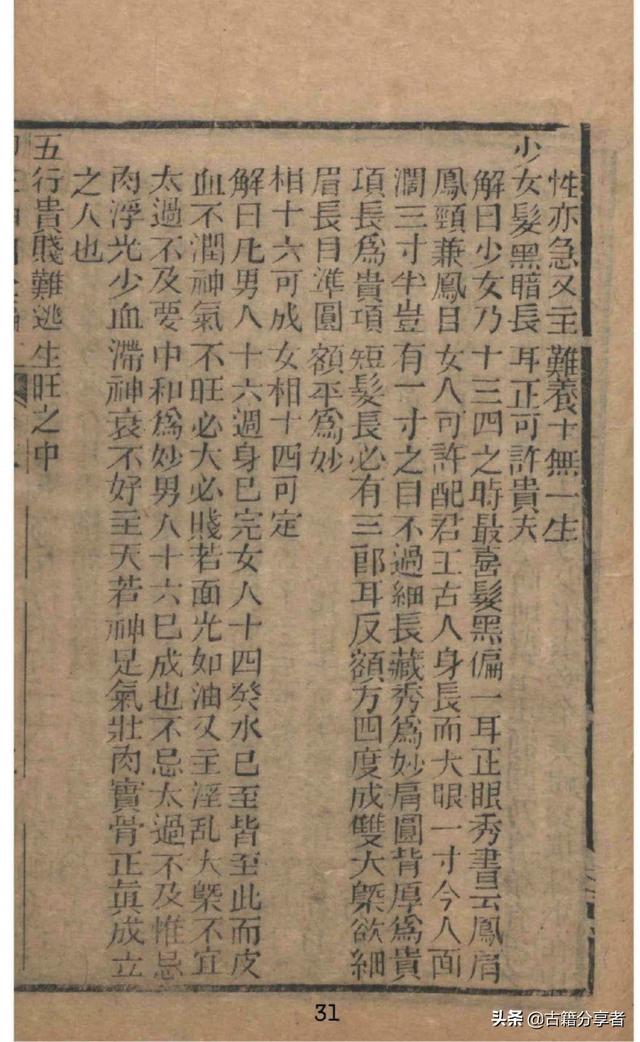 性亦急又主難養十無一生
少女髮黑暗長耳正可許貴夫
解曰少女乃十三四之時最喜髮黑偏一耳正眼秀書云鳳肩
鳳頸兼鳳目女人可許配君王古人身長而大眼一寸今人面
濶三寸半豈有一寸之目不過細長藏秀爲妙肩圓背厚爲貴
項長爲貴項短髮長必有三郎耳反額方四度成雙大槩欲細
眉長目準圓額平爲妙
相十六可成女相十四可定
解曰凡男人十六週身已完女人十四癸水已至皆至此而皮
血不潤神氣不旺必大必賤若面光如油又主淫乱大槩不宜
太過不及要中和爲妙男人十六已成也不忌太過不及惟忌
肉浮光少血滯神衰不好主天若神足氣壯肉實骨正眞成立
之人也
五行貴賤難逃生旺之中
31
头条 @古籍分享者